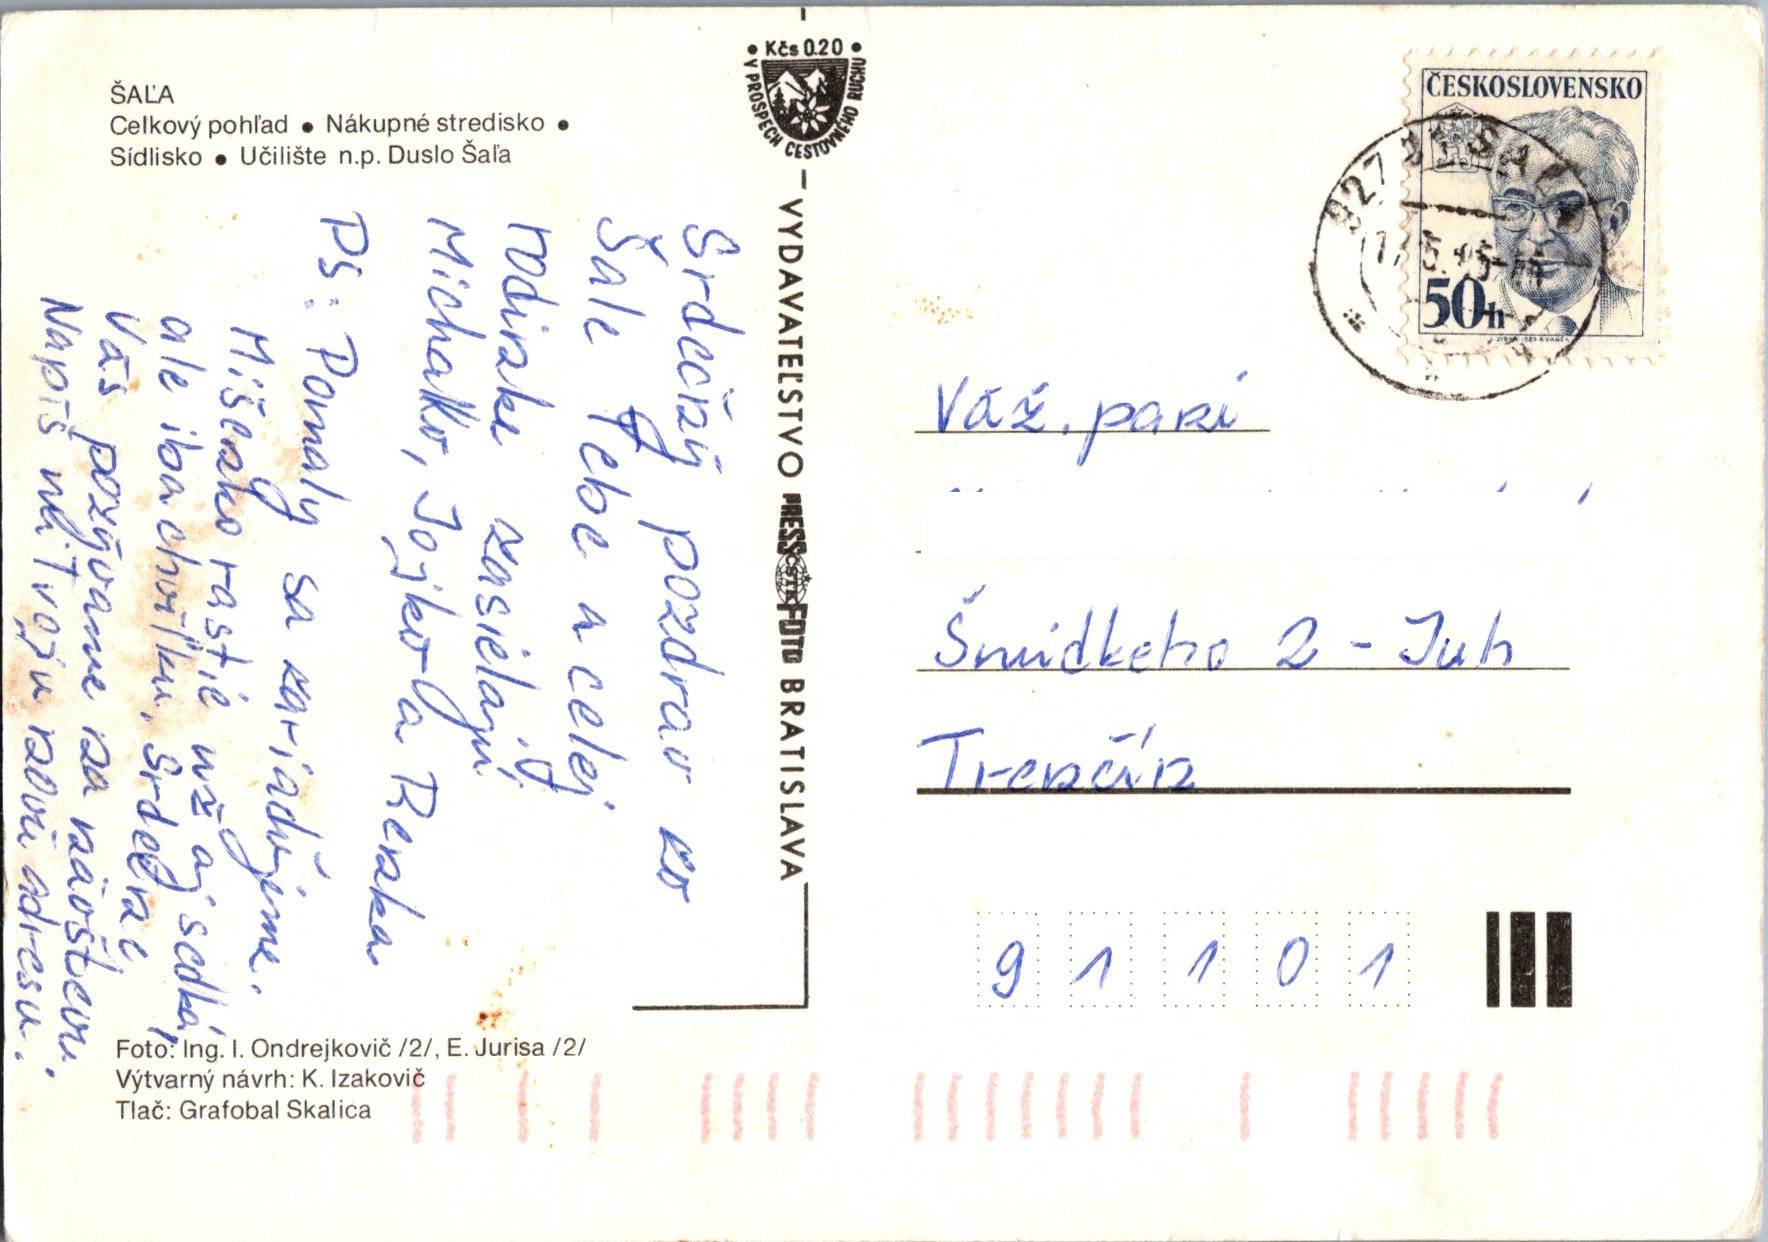 ŠAĽA
Celkový pohľad ● Nákupné stredisko ●
Sídlisko ● Učilište n.p. Duslo Šaľa
• Kčs 0.20 •
V PROSPECH CESTOVNÉHO RUCHU
VYDAVATEĽSTVO PRESSFOTO BRATISLAVA
ČSTK
ČESKOSLOVENSKO
50h
927
Srdečný pozdrav zo
Šale Tebe a celej
rodinke zasielajú
Michalko, Jojko a Renka
PS: Pomaly sa zariaďujeme.
Mišenko rastie už aj sedká,
ale iba chviľku. Srdečne
Vás pozývame na návštevu.
Napíš mi Tvoju novú adresu.
Váž. pani
Šmidkeho 2 - Juh
Trenčín
91101
Foto: Ing. I. Ondrejkovič /2/, E. Jurisa /2/
Výtvarný návrh: K. Izakovič
Tlač: Grafobal Skalica